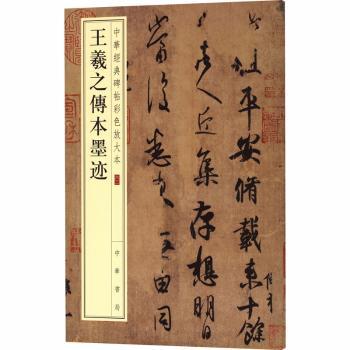 粗平安脩載來十餘
諸人近集存想明日
當復悉來無由同
中華經典碑帖彩色放大本
王羲之傳本墨迹
中華書局